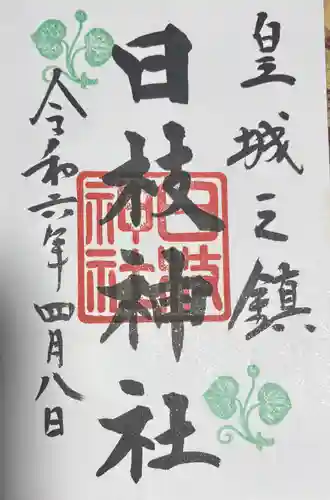 皇城之鎮
日枝神社
日枝
神社
令和六年四月八日